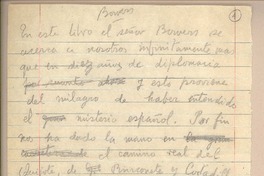 Bowers
1
En este libro el señor Bowers se
acerca a nosotros infinitamente mas
que en diez años de diplomacia
y esto proviene
del milagro de haber entendido
el misterio español. Por fin
nos ha dado la mano en
el camino real del
Quijote, de